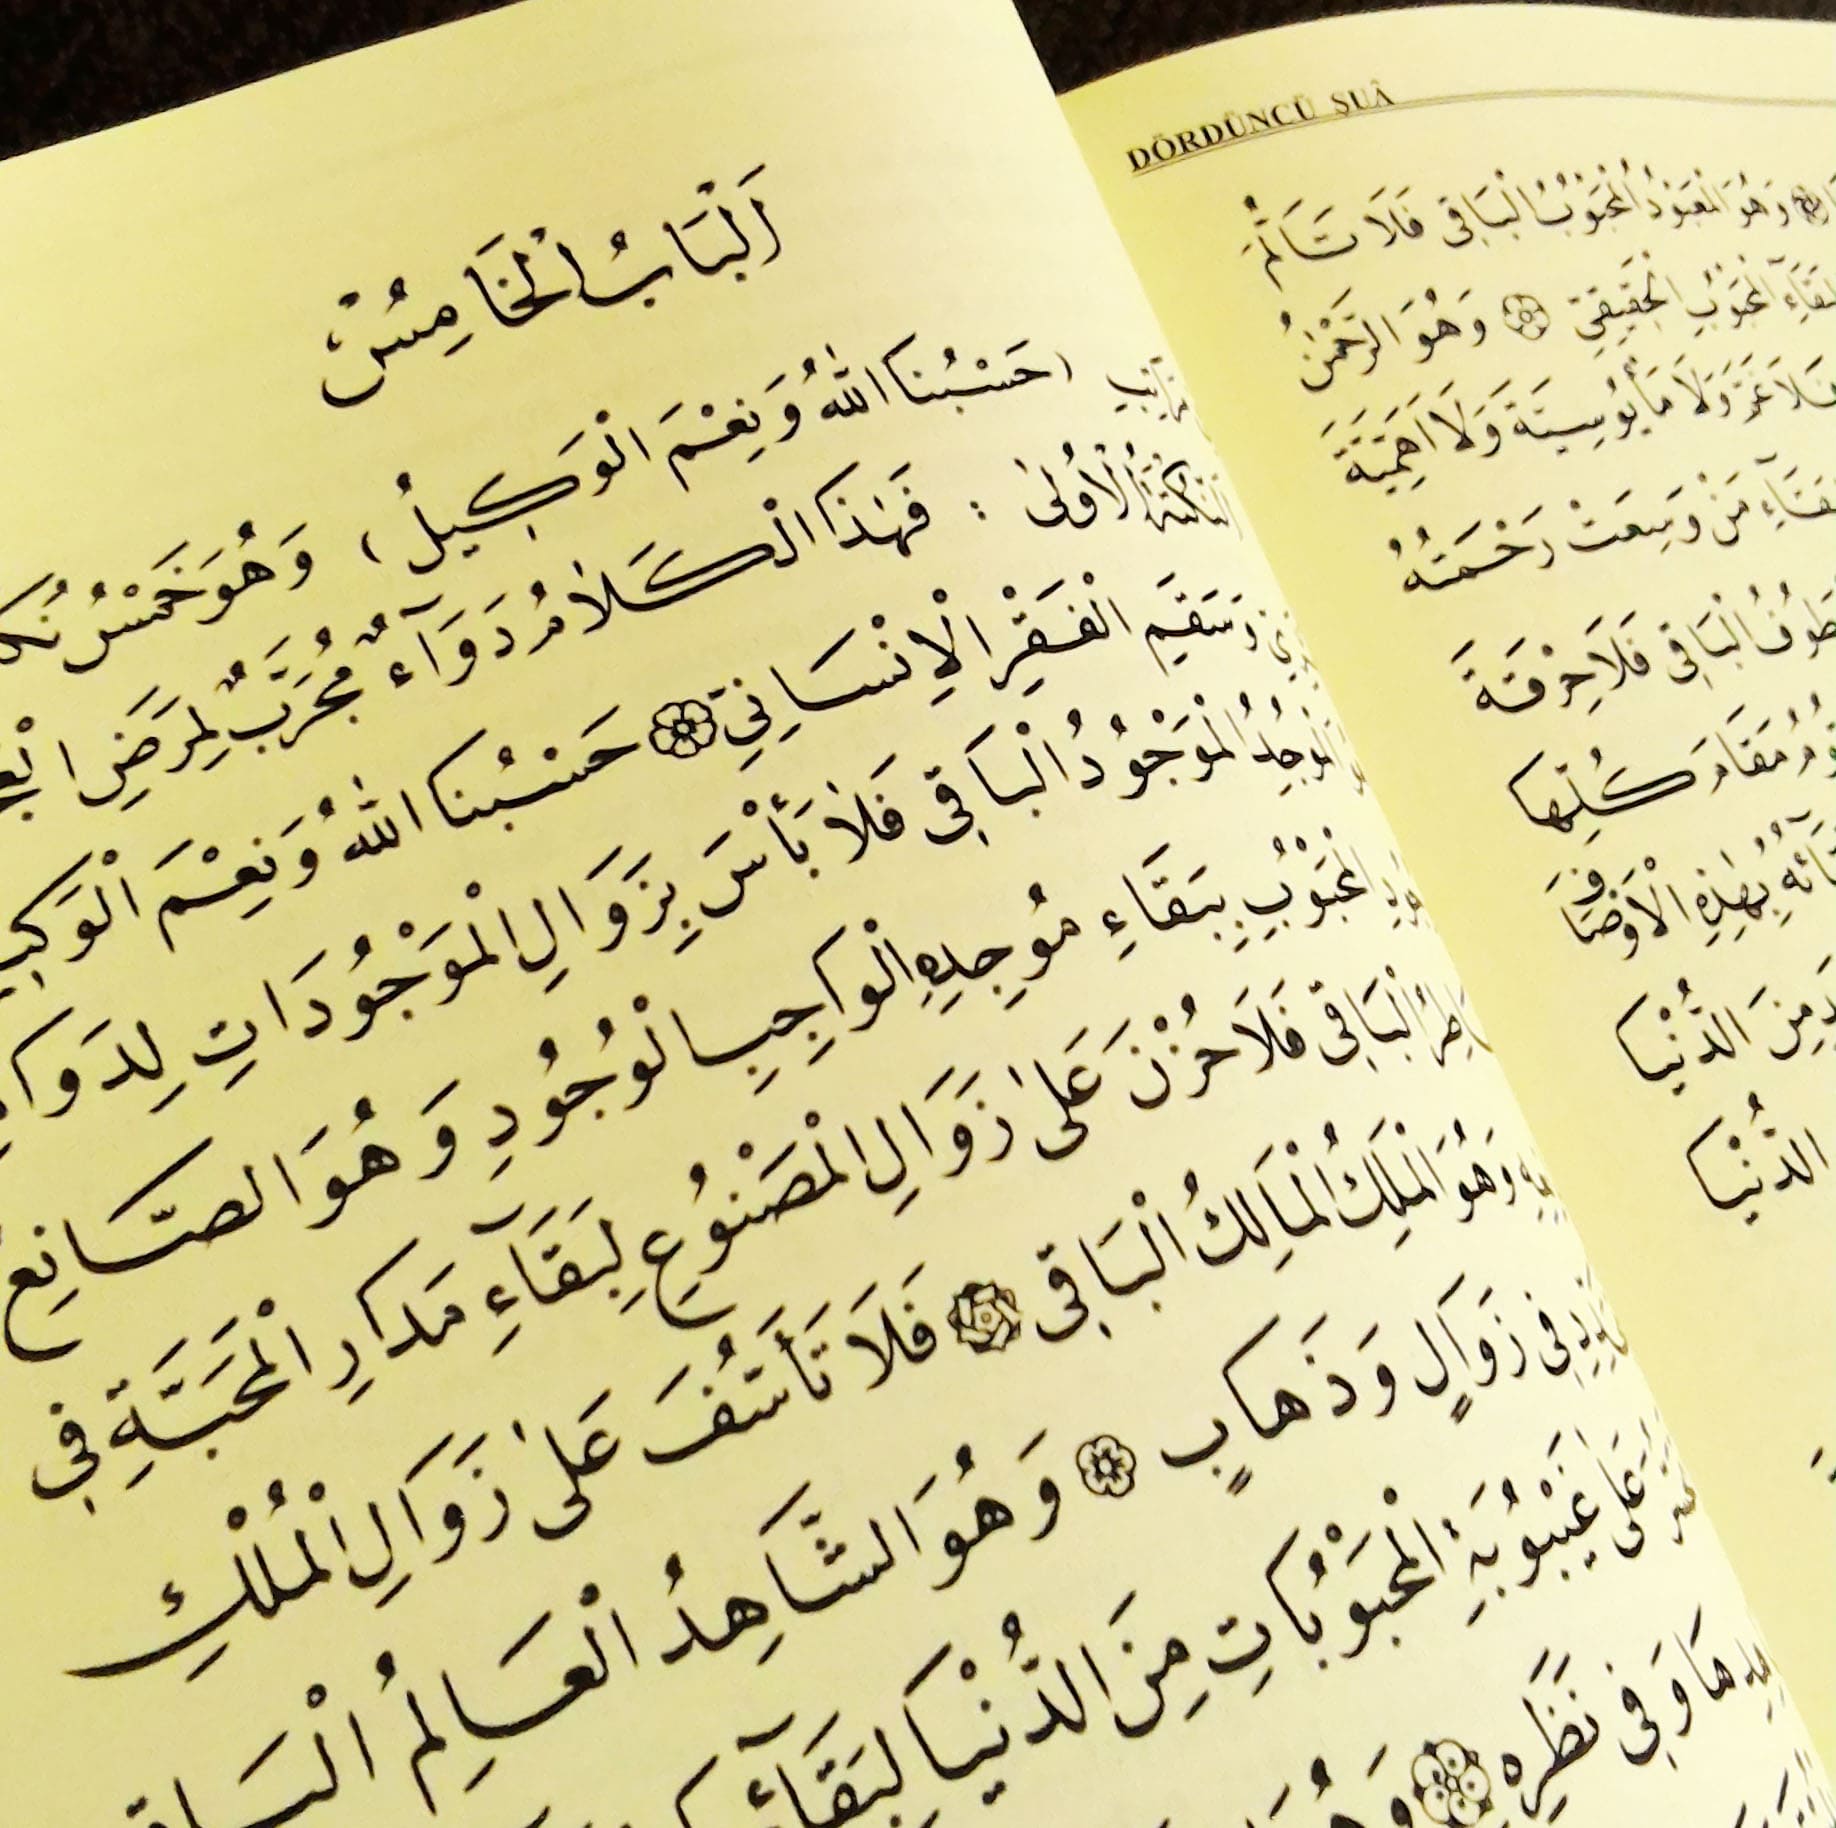 اَلْبَابُ الْخَامِسُ
مَرَاتِبِ ( حَسْبُنَا اللّٰهُ وَنِعْمَ الْوَكِيلُ ) وَهُوَ خَمْسُ
اَلنُّكْتَةُ الْاُولٰى : فَهٰذَا الْكَلَامُ دَوَآءٌ مُجَرَّبٌ لِمَرَضِ
وَسَقَمِ الْفَقْرِ الْاِنْسَانِيِّ ۞ حَسْبُنَا اللّٰهُ وَنِعْمَ
الْمُوجِدُ الْمَوْجُودُ الْبَاقِى فَلَا بَأْسَ بِزَوَالِ الْمَوْجُودَاتِ
الْمَحْبُوبِ بِبَقَاءِ مُوجِدِهِ الْوَاجِبِ الْوُجُودِ وَهُوَ الصَّانِعُ
الْبَاقِى فَلَا حُزْنَ عَلٰى زَوَالِ الْمَصْنُوعِ لِبَقَآءِ مَدَارِ الْمَحَبَّةِ فِى
وَهُوَ الْمَلِكُ الْمَالِكُ الْبَاقِى ۞ فَلَا تَأَسُّفَ عَلٰى زَوَالِ الْمُلْكِ
فِى زَوَالٍ وَذَهَابٍ ۞ وَهُوَ الشَّاهِدُ الْعَالِمُ
عَلٰى غَيْبُوبَةِ الْمَحْبُوبَاتِ مِنَ الدُّنْيَا لِبَقَآءِ
وَفِى نَظَرِهِ ۞
DÖRDÜNCÜ ŞUÂ
وَهُوَ الْمَعْبُودُ الْمَحْبُوبُ الْبَاقِى فَلَا
الْمَحْبُوبِ الْحَقِيقِىِّ ۞ وَهُوَ الرَّحْمٰنُ
وَلَا مَأْيُوسِيَّةَ وَلَا اَهَمِّيَّةَ
مَنْ وَسِعَتْ رَحْمَتُهُ
الْبَاقِى فَلَا حِرْقَةَ
مَقَامَ كُلِّهَا
بِهٰذِهِ الْاَوْصَافِ
مِنَ الدُّنْيَا
الدُّنْيَا